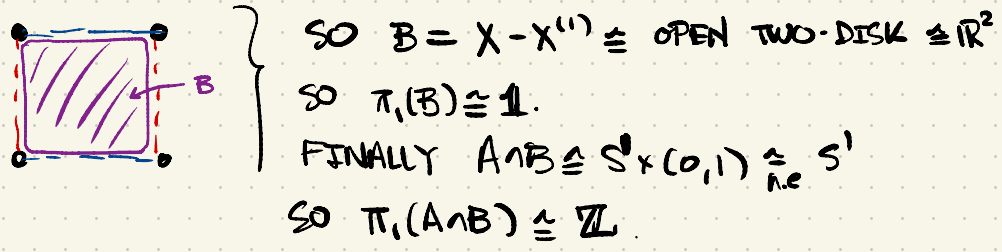 B
SO B = X - X⁽¹⁾ ≅ OPEN TWO-DISK ≅ ℝ²
SO π₁(B) ≅ 𝟙.
FINALLY A∩B ≅ S¹ × (0,1) ≃ h.e S¹
SO π₁(A∩B) ≅ ℤ.